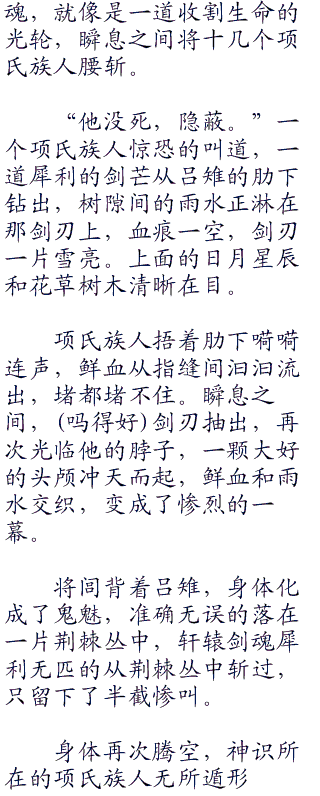 魂，就像是一道收割生命的
光轮，瞬息之间将十几个项
氏族人腰斩。
“他没死，隐蔽。”一
个项氏族人惊恐的叫道，一
道犀利的剑芒从吕雉的肋下
钻出，树隙间的雨水正淋在
那剑刃上，血痕一空，剑刃
一片雪亮。上面的日月星辰
和花草树木清晰在目。
项氏族人捂着肋下嗬嗬
连声，鲜血从指缝间汩汩流
出，堵都堵不住。瞬息之
间，(吗得好)剑刃抽出，再
次光临他的脖子，一颗大好
的头颅冲天而起，鲜血和雨
水交织，变成了惨烈的一
幕。
将闾背着吕雉，身体化
成了鬼魅，准确无误的落在
一片荆棘丛中，轩辕剑魂犀
利无匹的从荆棘丛中斩过，
只留下了半截惨叫。
身体再次腾空，神识所
在的项氏族人无所遁形